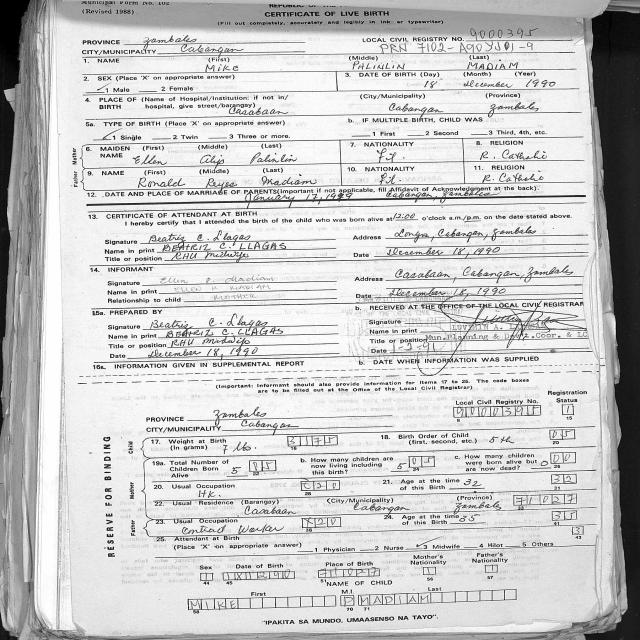 Municipal Form No. 102
(Revised 1988)
CERTIFICATE OF LIVE BIRTH
(Fill out completely, accurately and legibly in ink or typewriter)
PROVINCE Zambales LOCAL CIVIL REGISTRY NO. 9000395
CITY/MUNICIPALITY Cabangan
1. NAME (First) MIKE (Middle) PALINLIN (Last) MADIAM
2. SEX (Place 'X' on appropriate answer) 1 Male 2 Female
3. DATE OF BIRTH (Day) 18 (Month) December (Year) 1990
4. PLACE OF BIRTH (Name of Hospital/institution: if not in/ hospital, give street/barangay) Casabaan (City/Municipality) Cabangan (Province) Zambales
5a. TYPE OF BIRTH (Place 'X' on appropriate answer) 1 Single 2 Twin 3 Three or more.
b. IF MULTIPLE BIRTH, CHILD WAS 1 First 2 Second 3 Third, 4th, etc.
Mother
6. MAIDEN NAME (First) Ellen (Middle) (Last) Palinlin
7. NATIONALITY Fil.
8. RELIGION R. Catholic
Father
9. NAME (First) Ronald (Middle) Reyes (Last) Madiam
10. NATIONALITY Fil.
11. RELIGION R. Catholic
12. DATE AND PLACE OF MARRIAGE OF PARENTS (Important if not applicable, fill Affidavit of Acknowledgment at the back).
January 17, Cabangan, Zambales
13. CERTIFICATE OF ATTENDANT AT BIRTH
I hereby certify that I attended the birth of the child who was born alive at 12:00 o'clock a.m./p.m. on the date stated above.
Signature Beatriz C. Llagas Address Longos, Cabangan, Zambales
Name in print BEATRIZ C. LLAGAS
Title or position RHU Midwife Date December 18, 1990
14. INFORMANT
Signature Ellen P. Madiam Address Casabaan, Cabangan, Zambales
Name in print ELLEN P. MADIAM
Relationship to child MOTHER Date December 18, 1990
15a. PREPARED BY b. RECEIVED AT THE OFFICE OF THE LOCAL CIVIL REGISTRAR
Signature Beatriz C. Llagas Signature
Name in print BEATRIZ C. LLAGAS Name in print
Title or position RHU Midwife Title or position Mun. Planning & Dev't. Coor. & LC
Date December 18, 1990 Date 1-2-91
16a. INFORMATION GIVEN IN SUPPLEMENTAL REPORT b. DATE WHEN INFORMATION WAS SUPPLIED
(Important: Informant should also provide information for items 17 to 25. The code boxes
are to be filled out at the Office of the Local Civil Registrar)
RESERVE FOR BINDING
PROVINCE Zambales Local Civil Registry No. 9000395 Registration Status 1
CITY/MUNICIPALITY Cabangan
Child
17. Weight at Birth (In grams) 7 lbs. 3175
18. Birth Order of Child (first, second, etc.) 5th 05
Mother
19a. Total Number of Children Born Alive 5 05
b. How many children are now living including this birth? 5 05
c. How many children were born alive but are now dead? 0 00
20. Usual Occupation HK.
21. Age at the time of this Birth 32 32
22. Usual Residence (Barangay) Casabaan (City/Municipality) Cabangan (Province) Zambales 71027
Father
23. Usual Occupation Contract Worker X20
24. Age at the time of this Birth 35 35
25. Attendant at Birth
(Place 'X' on appropriate answer) 1 Physician 2 Nurse 3 Midwife 4 Hilot 5 Others 3
Sex Date of Birth Place of Birth Mother's Nationality Father's Nationality
NAME OF CHILD
First M.I. Last
MIKE P MADIAM
"IPAKITA SA MUNDO, UMAASENSO NA TAYO".